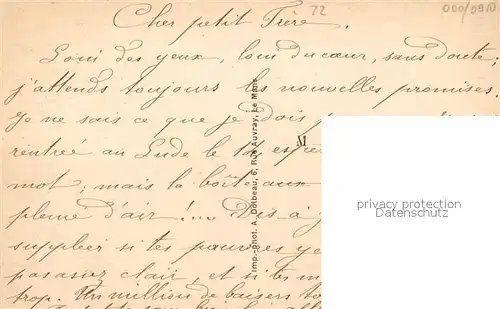 Cher petit Frère,
72
000/0910
Loin des yeux, loin du cœur, sans doute;
j'attends toujours les nouvelles promises.
Je ne sais ce que je dois
rentrée au Lude le 12
mot; mais la boîte aux
pleine d'air!... Dis à
suppléer si tes pauvres
pas assez clair, et si tes
trop. Un million de baisers
M
Imp.-phot. A. Dolbeau, 6, Rue Auvray, Le Mans
privacy protection
Datenschutz